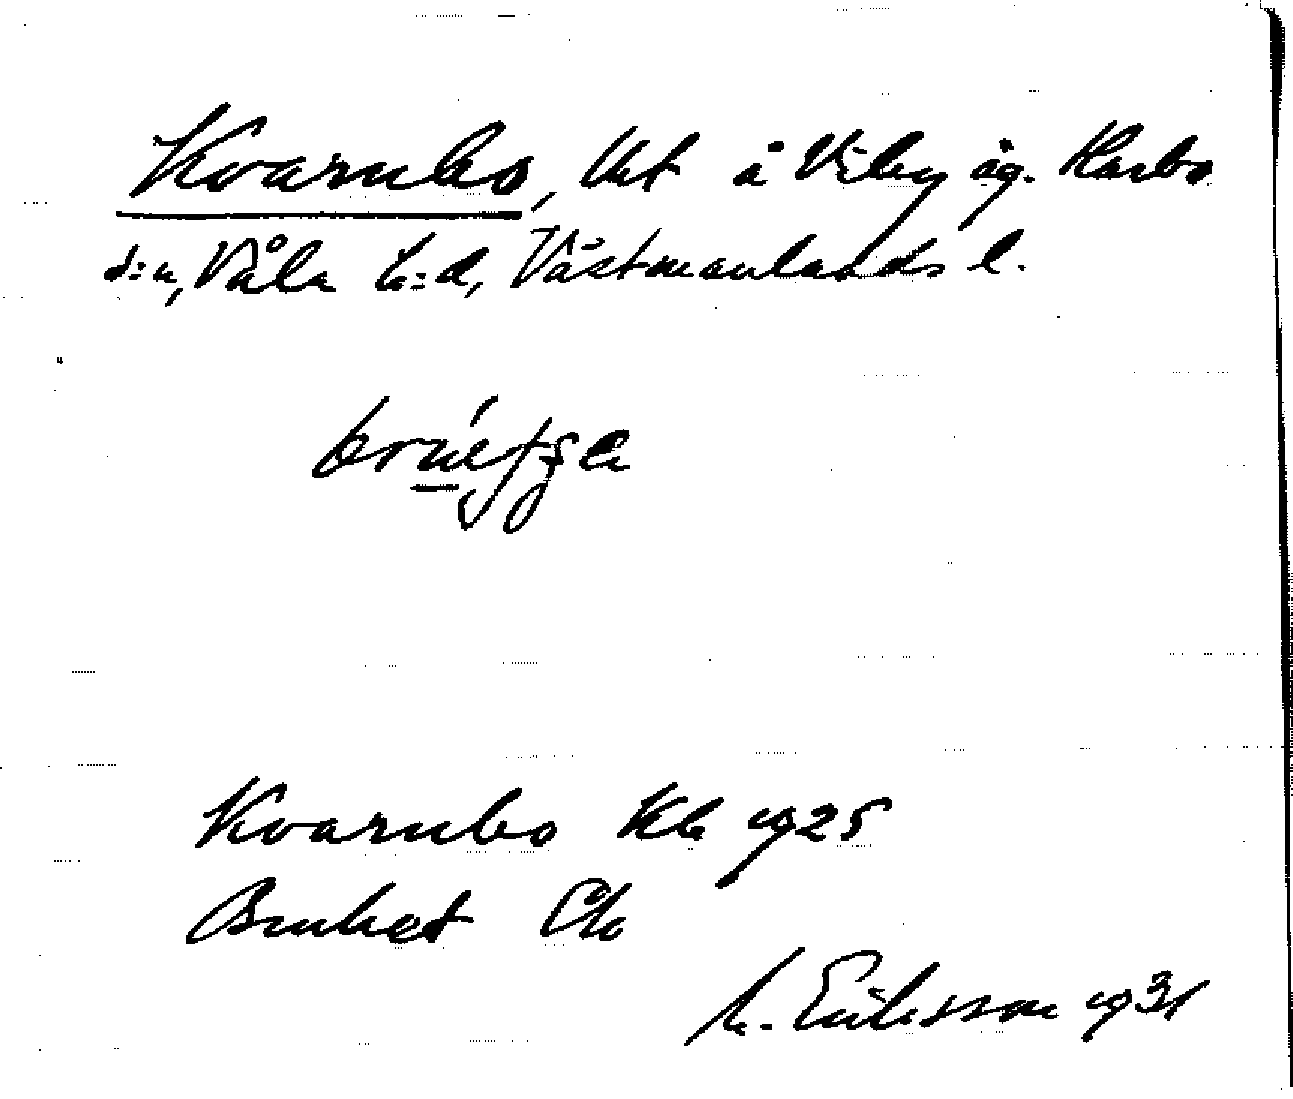 Kvarnbo, Utt å Viby äg. Harbo
s:n, Våla h:d, Västmanlands l.
Kvarnbo Kb 1925
Bruket Ck
M. Eriksson 1931